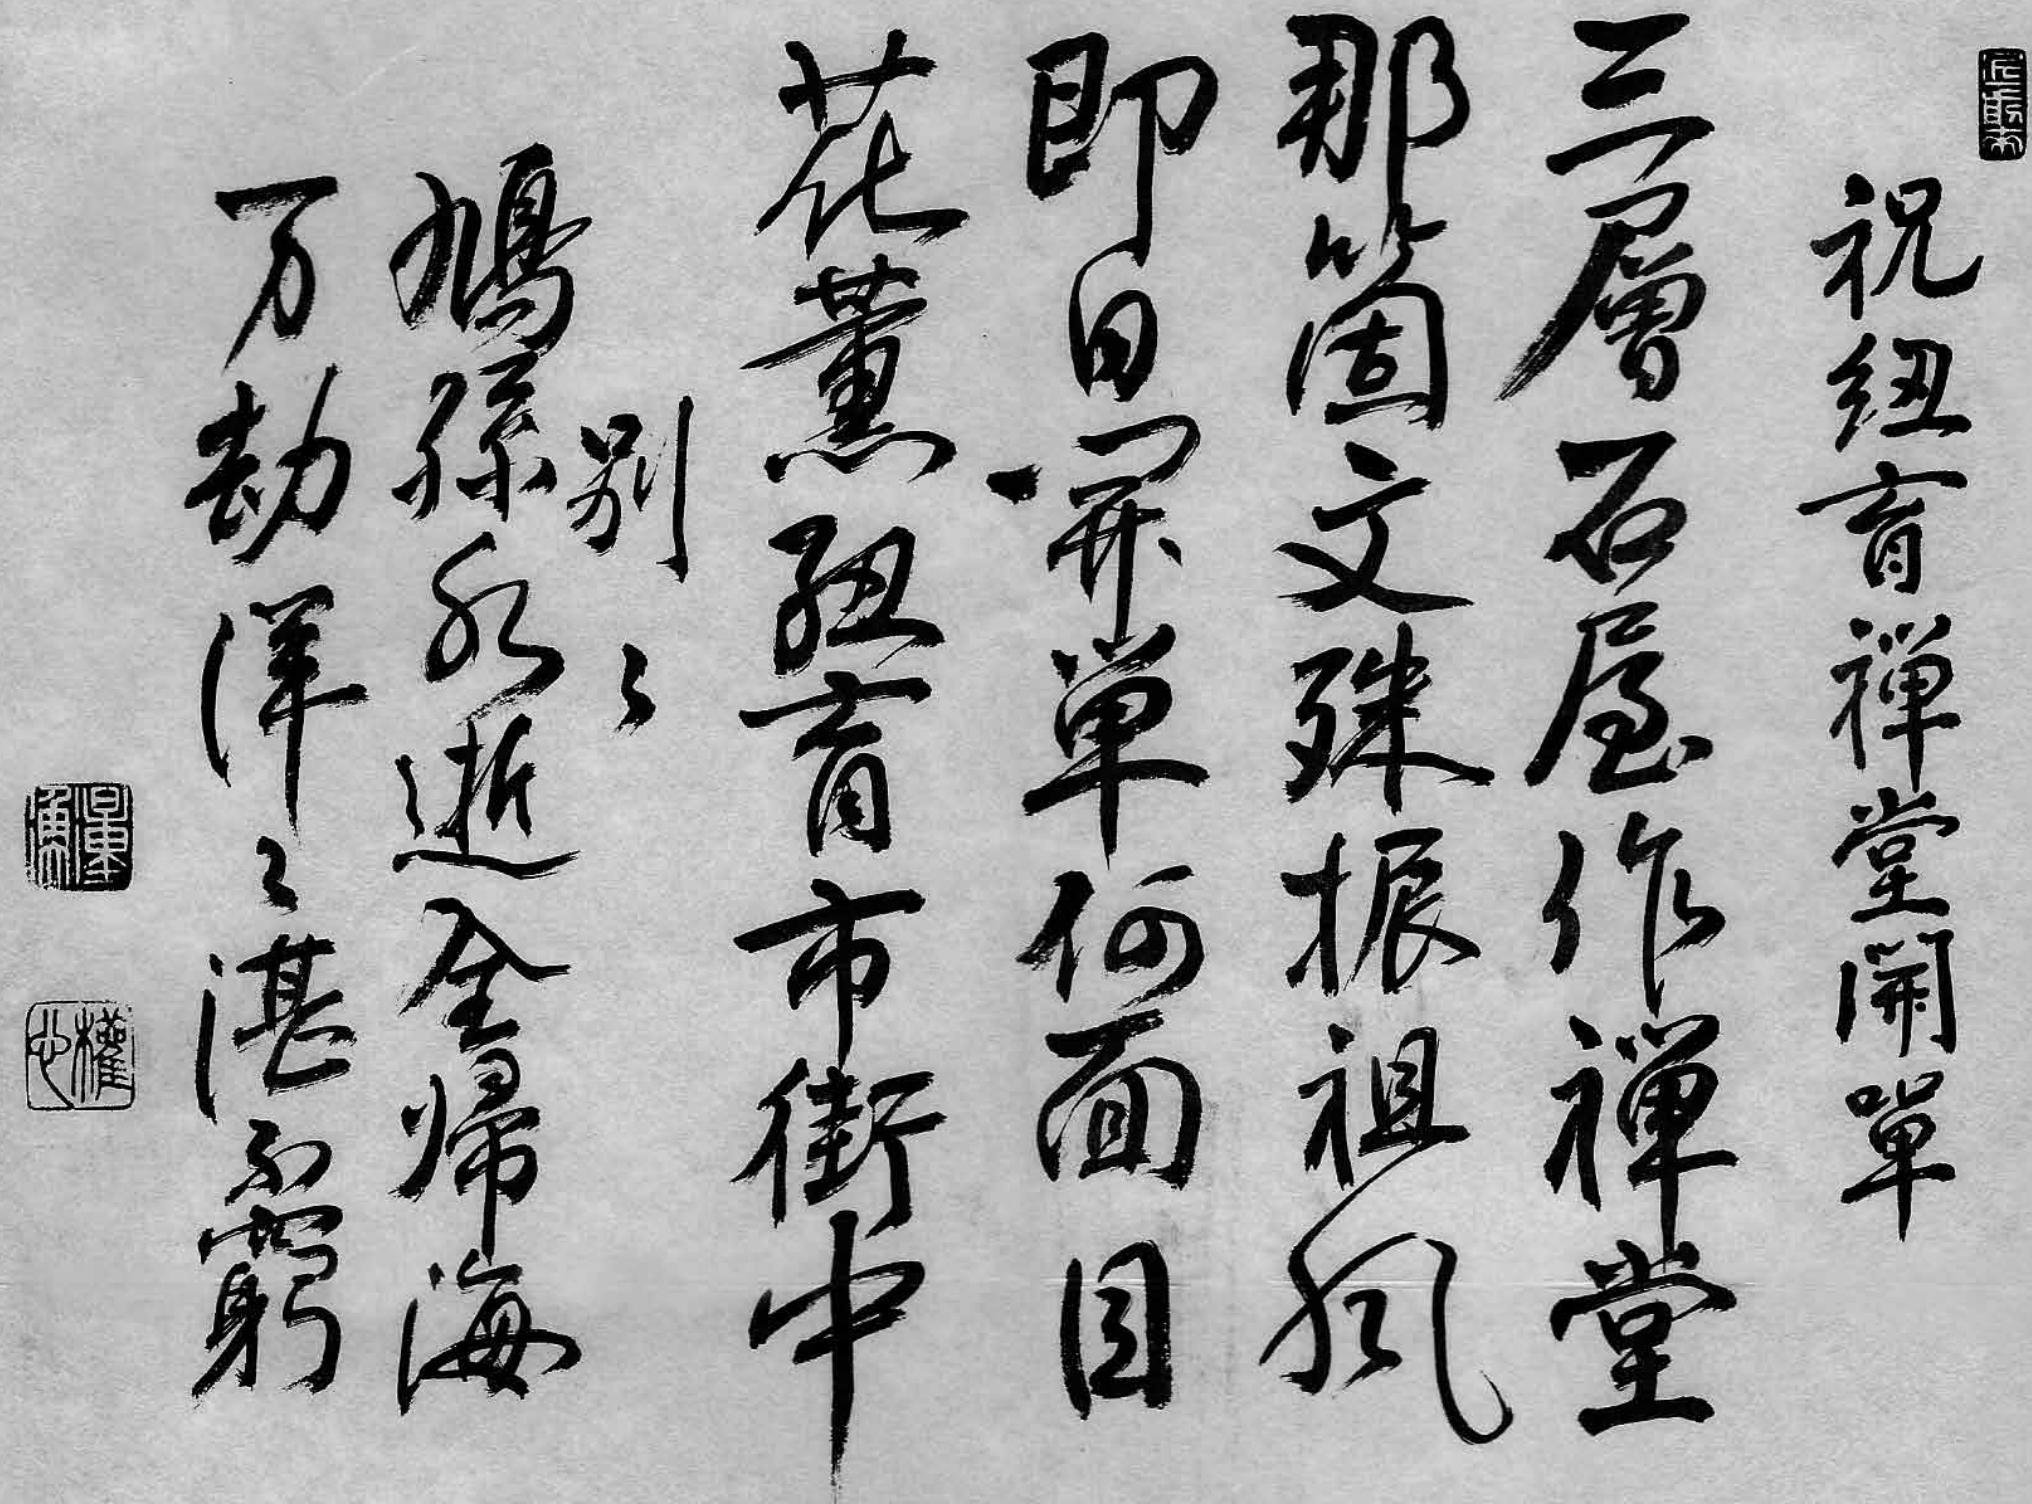 祝紐育禅堂開單
三層石屋作禅堂
那箇文殊振祖風
即日開単何面目
花薫紐育市街中
別々
鳩孫永逝全帰海
万劫渾々湛不窮